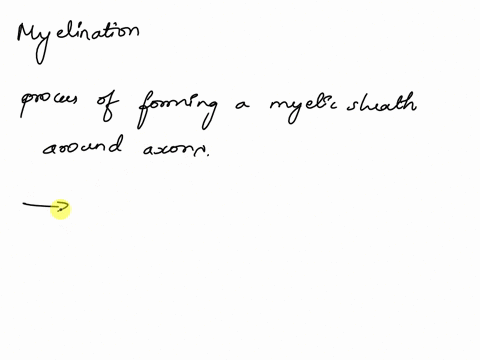 Myelination
process of forming a myelic sheath
around axons.